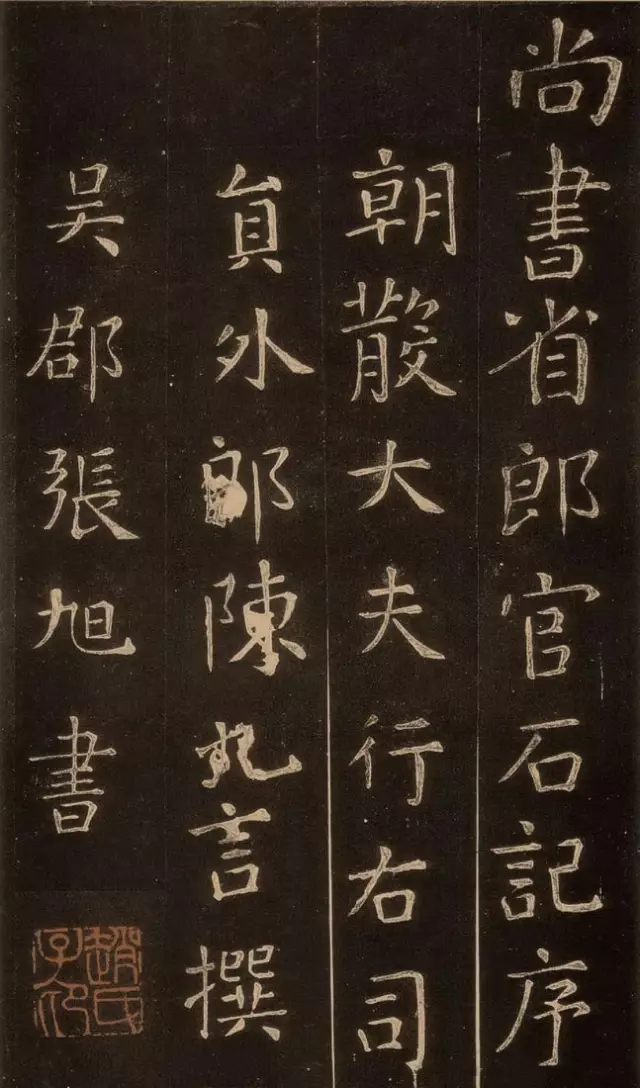 尚書省郎官石記序
朝散大夫行右司
貟外郎陳九言撰
吳郡張旭書
趙氏子昂